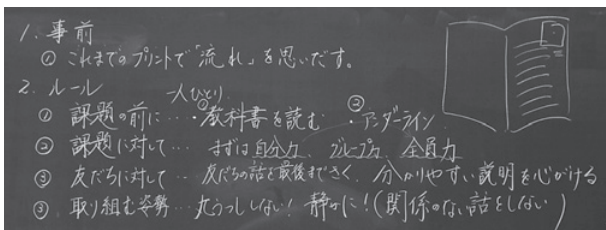 1. 事前
① これまでのプリントで「流れ」を思いだす。
2. ルール
一人ひとり
① 課題の前に… ・①教科書を読む ②・アンダーライン
② 課題に対して… まずは自分力、グループ力、全員力
③ 友だちに対して… 友だちの話を最後まできく、分かりやすい説明を心がける
③ 取り組む姿勢… 丸うつししない! 静かに!(関係のない話をしない)